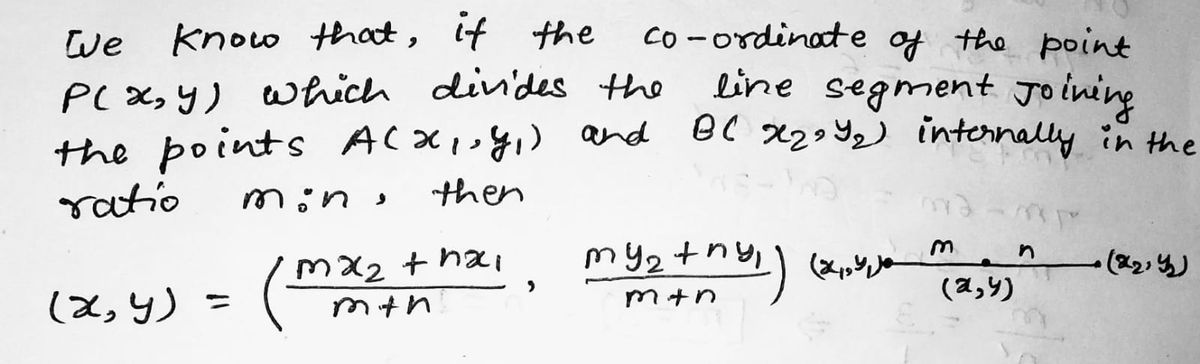 We know that, if the co-ordinate of the point
P(x, y) which divides the line segment Joining
the points A(x₁, y₁) and B(x₂, y₂) internally in the
ratio m:n, then
(x, y) = ( (mx₂ + nx₁)/(m+n) , (my₂ + ny₁)/(m+n) ) (x₁, y₁) m n (x₂, y₂)
(x, y)